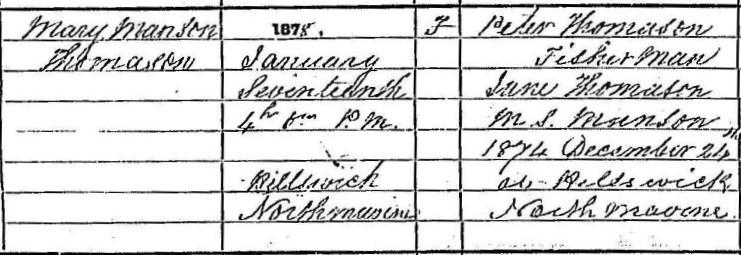 Mary Manson 1878, F Peter Thomason
Thomason January Fisherman
Seventeenth Jane Thomason
4h 0m P.M. M.S. Manson
1874 December 24th
Hillswick at Hillswick
Northmavine Northmavine